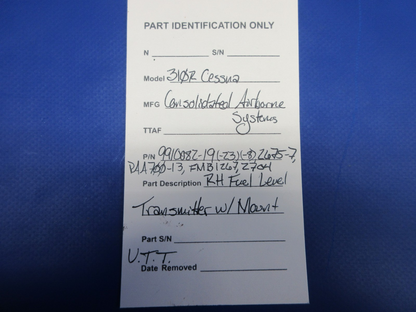 PART IDENTIFICATION ONLY
N S/N
Model 310R Cessna
MFG Consolidated Airborne
Systems
TTAF
P/N 9910082-19(-23)(-8), 2675-7,
DAA700-13, FMB1267, 2704
Part Description RH Fuel Level
Transmitter w/ Mount
Part S/N
U.T.T.
Date Removed